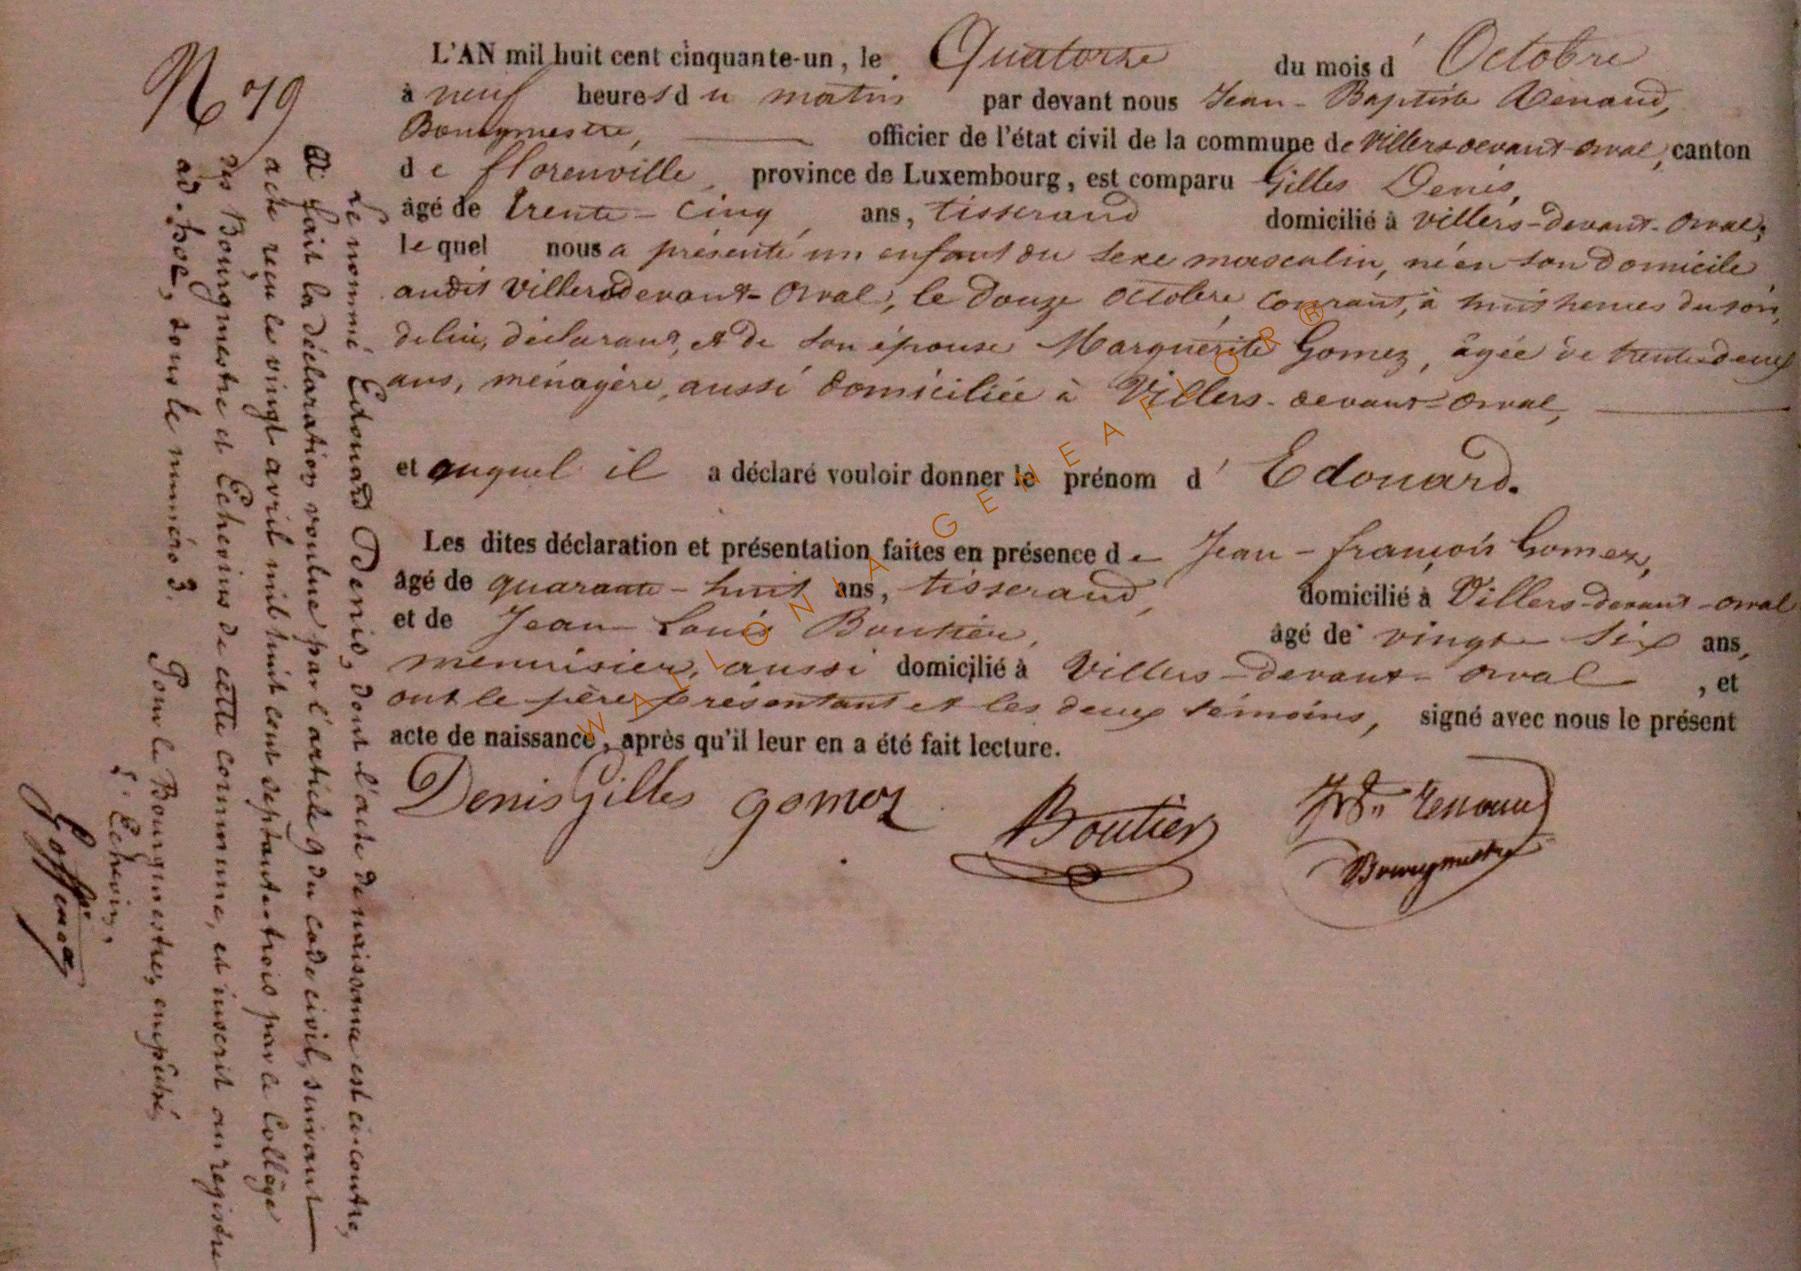 N 79
L'AN mil huit cent cinquante-un, le Quatorze du mois d'Octobre
à neuf heures du matin par devant nous Jean-Baptiste Renaud,
Bourgmestre, officier de l'état civil de la commune de Villers devant-orval, canton
de florenville, province de Luxembourg, est comparu Gilles Denis,
âgé de trente-cinq ans, tisserand domicilié à villers-devant-Orval;
lequel nous a présenté un enfant du sexe masculin, né en son domicile
audit Villers devant-Orval, le douze Octobre courant, à huit heures du soir,
de lui, déclarant, et de son épouse Marguerite Gomez, âgée de trente-deux
ans, ménagère, aussi domiciliée à Villers-devant-Orval,
et auquel il a déclaré vouloir donner le prénom d'Edouard.
Les dites déclaration et présentation faites en présence de Jean-françois Gomez,
âgé de quarante-huit ans, tisserand, domicilié à Villers-devant-orval
et de Jean-Louis Boutier, âgé de vingt six ans,
menuisier, aussi domicilié à Villers-devant-orval, et
ont le père présentant et les deux témoins, signé avec nous le présent
acte de naissance, après qu'il leur en a été fait lecture.
Denis Gilles gomez Boutier JBte Renaud
Bourgmestre
Le nommé Edouard Denis, dont l'acte de naissance est ci-contre,
a fait la déclaration voulue par l'article 9 du code civil, suivant
acte reçu le vingt avril mil huit cent septante-trois par le Collège
des Bourgmestre et Echevins de cette commune, et inscrit au registre
ad-hoc, sous le numéro 3.
Pour le Bourgmestre, empêché,
l'Echevin,
WALLONIA GENEAFLOR®